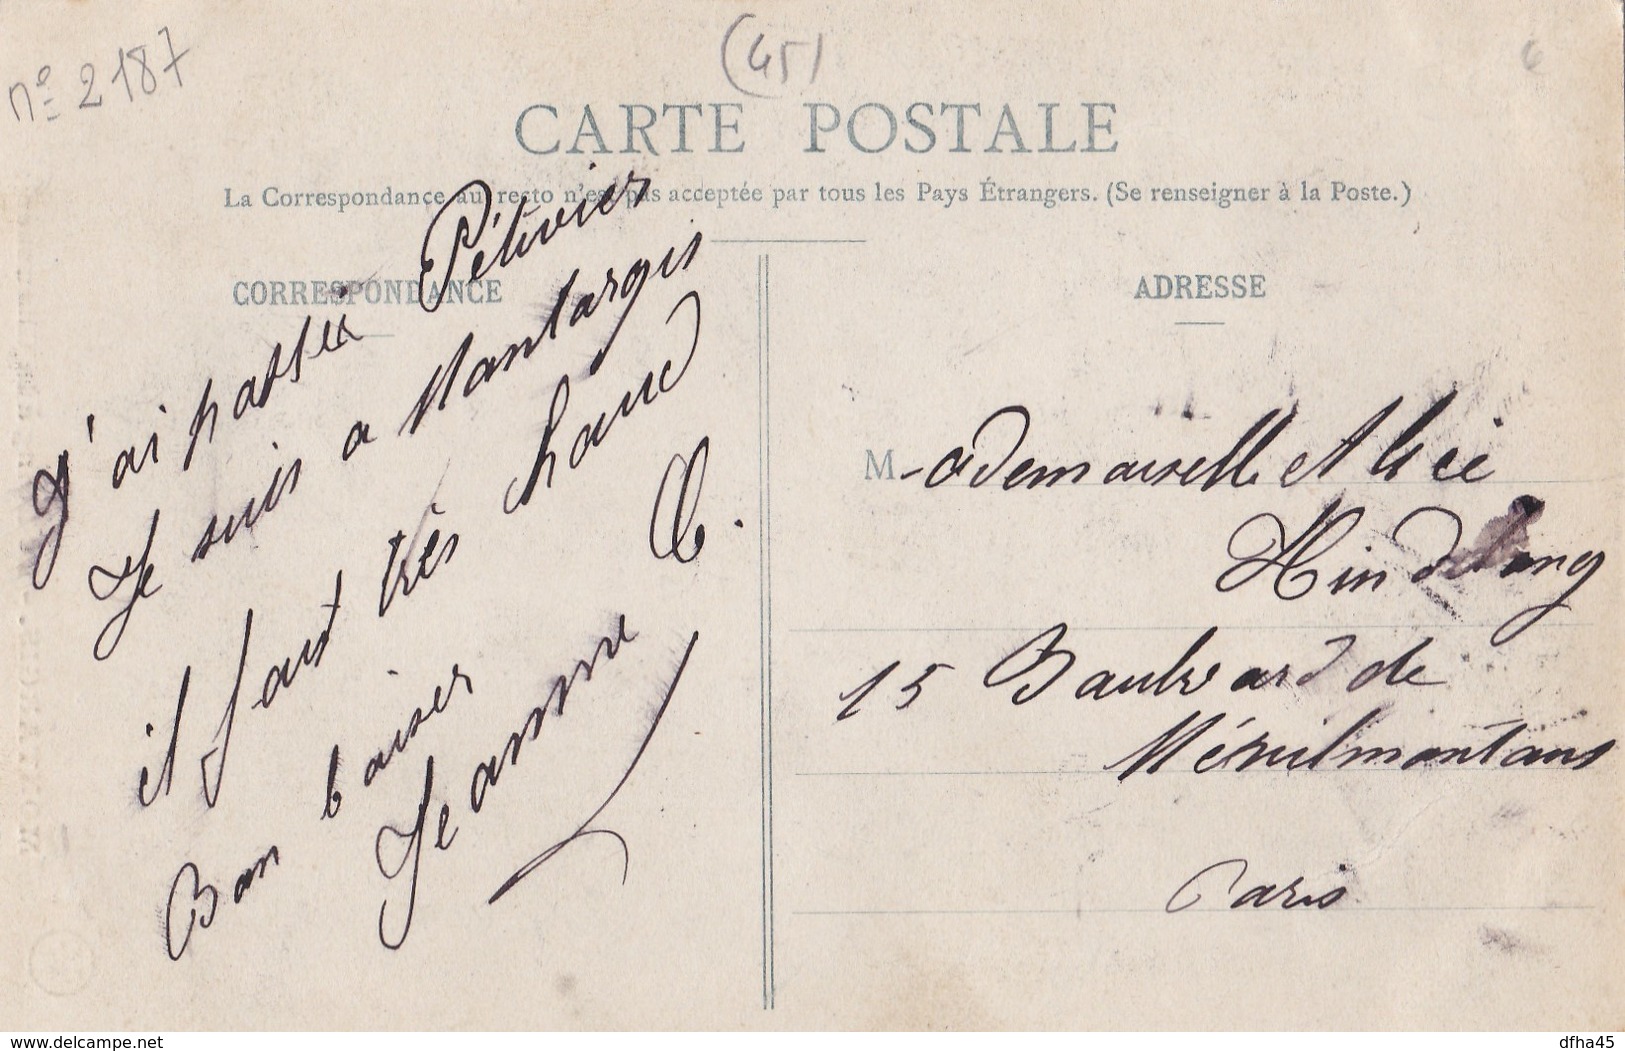 n° 2187
(45)
CARTE POSTALE
La Correspondance au recto n'est pas acceptée par tous les Pays Étrangers. (Se renseigner à la Poste.)
CORRESPONDANCE
J'ai passée Pétivier
Je suis a Montargis
il fait très chaud
Bon baiser
Jeanne C.
ADRESSE
Mademoiselle Alice
Hindelang
15 Boulvard de
Ménilmontans
Paris
delcampe.net
dfha45